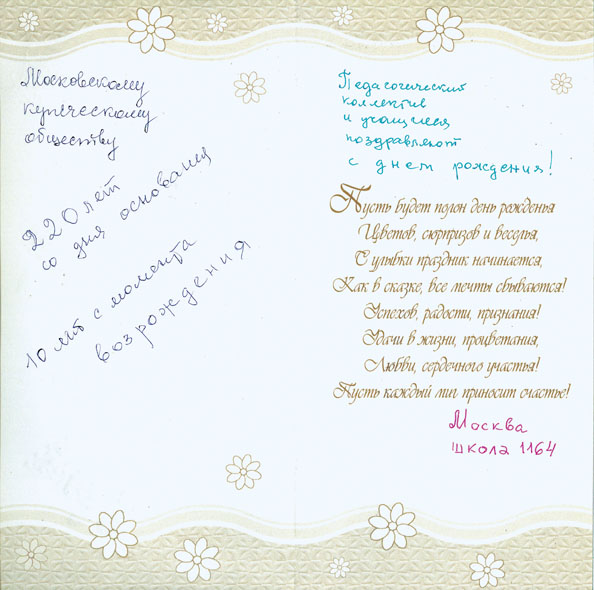 Московскому
купеческому
обществу
220 лет
со дня основания
10 лет с момента
возрождения
Педагогический
коллектив
и учащиеся
поздравляют
с днем рождения!
Пусть будет полон день рожденья
Цветов, сюрпризов и веселья,
С улыбки праздник начинается,
Как в сказке, все мечты сбываются!
Успехов, радости, признания!
Удачи в жизни, процветания,
Любви, сердечного участья!
Пусть каждый миг приносит счастье!
Москва
школа 1164